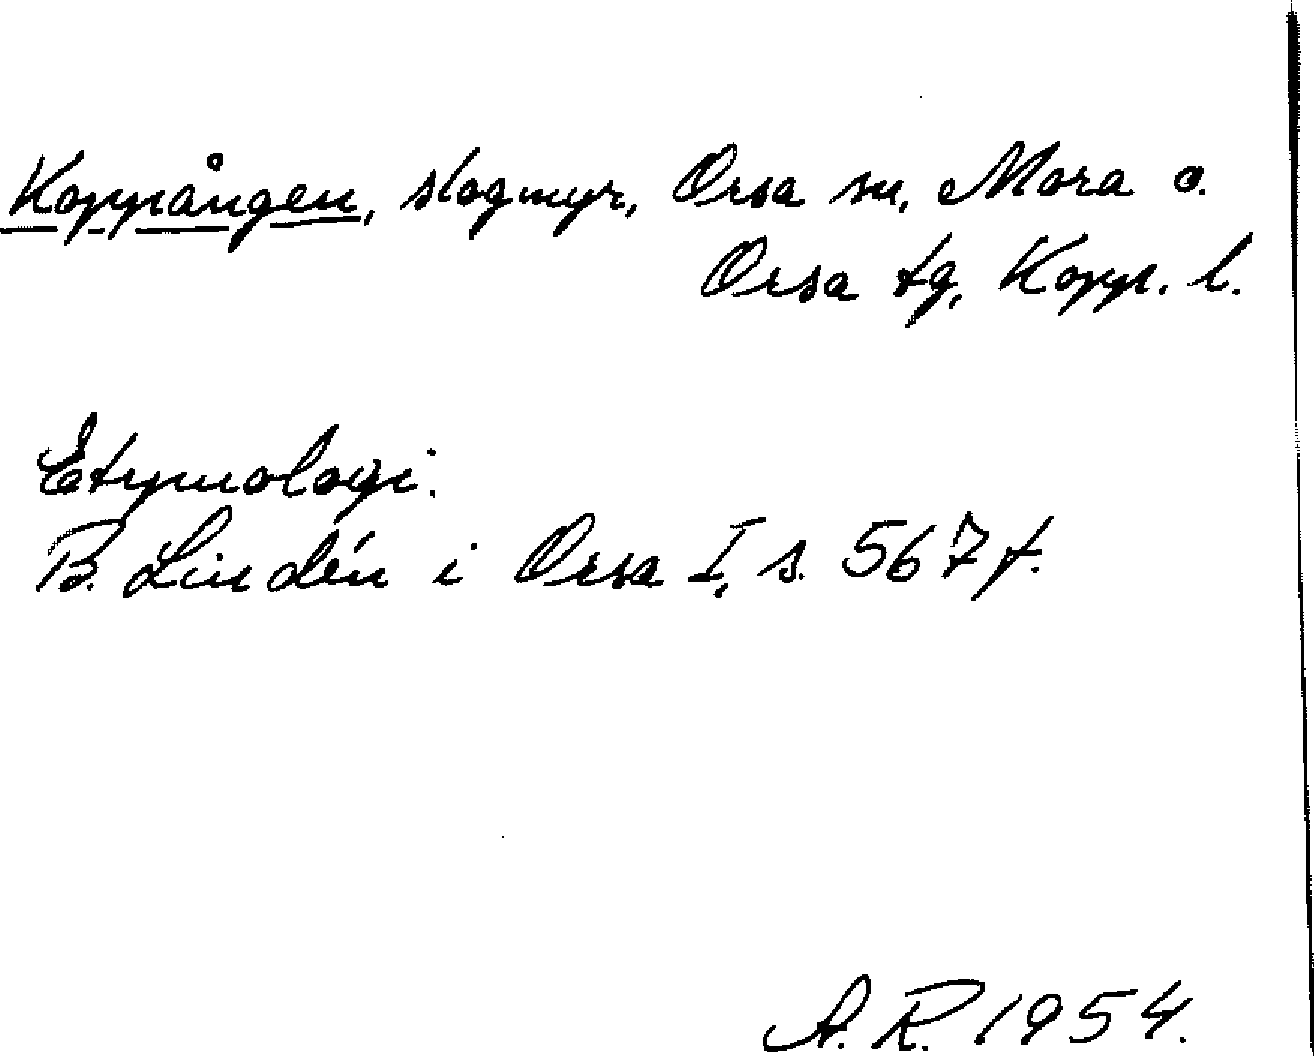 Koppången, skogmyr, Orsa sn, Mora o.
Orsa tg, Kopp. l.
Etymologi:
B. Lindén i Orsa I, s. 567 f.
A. R. 1954.